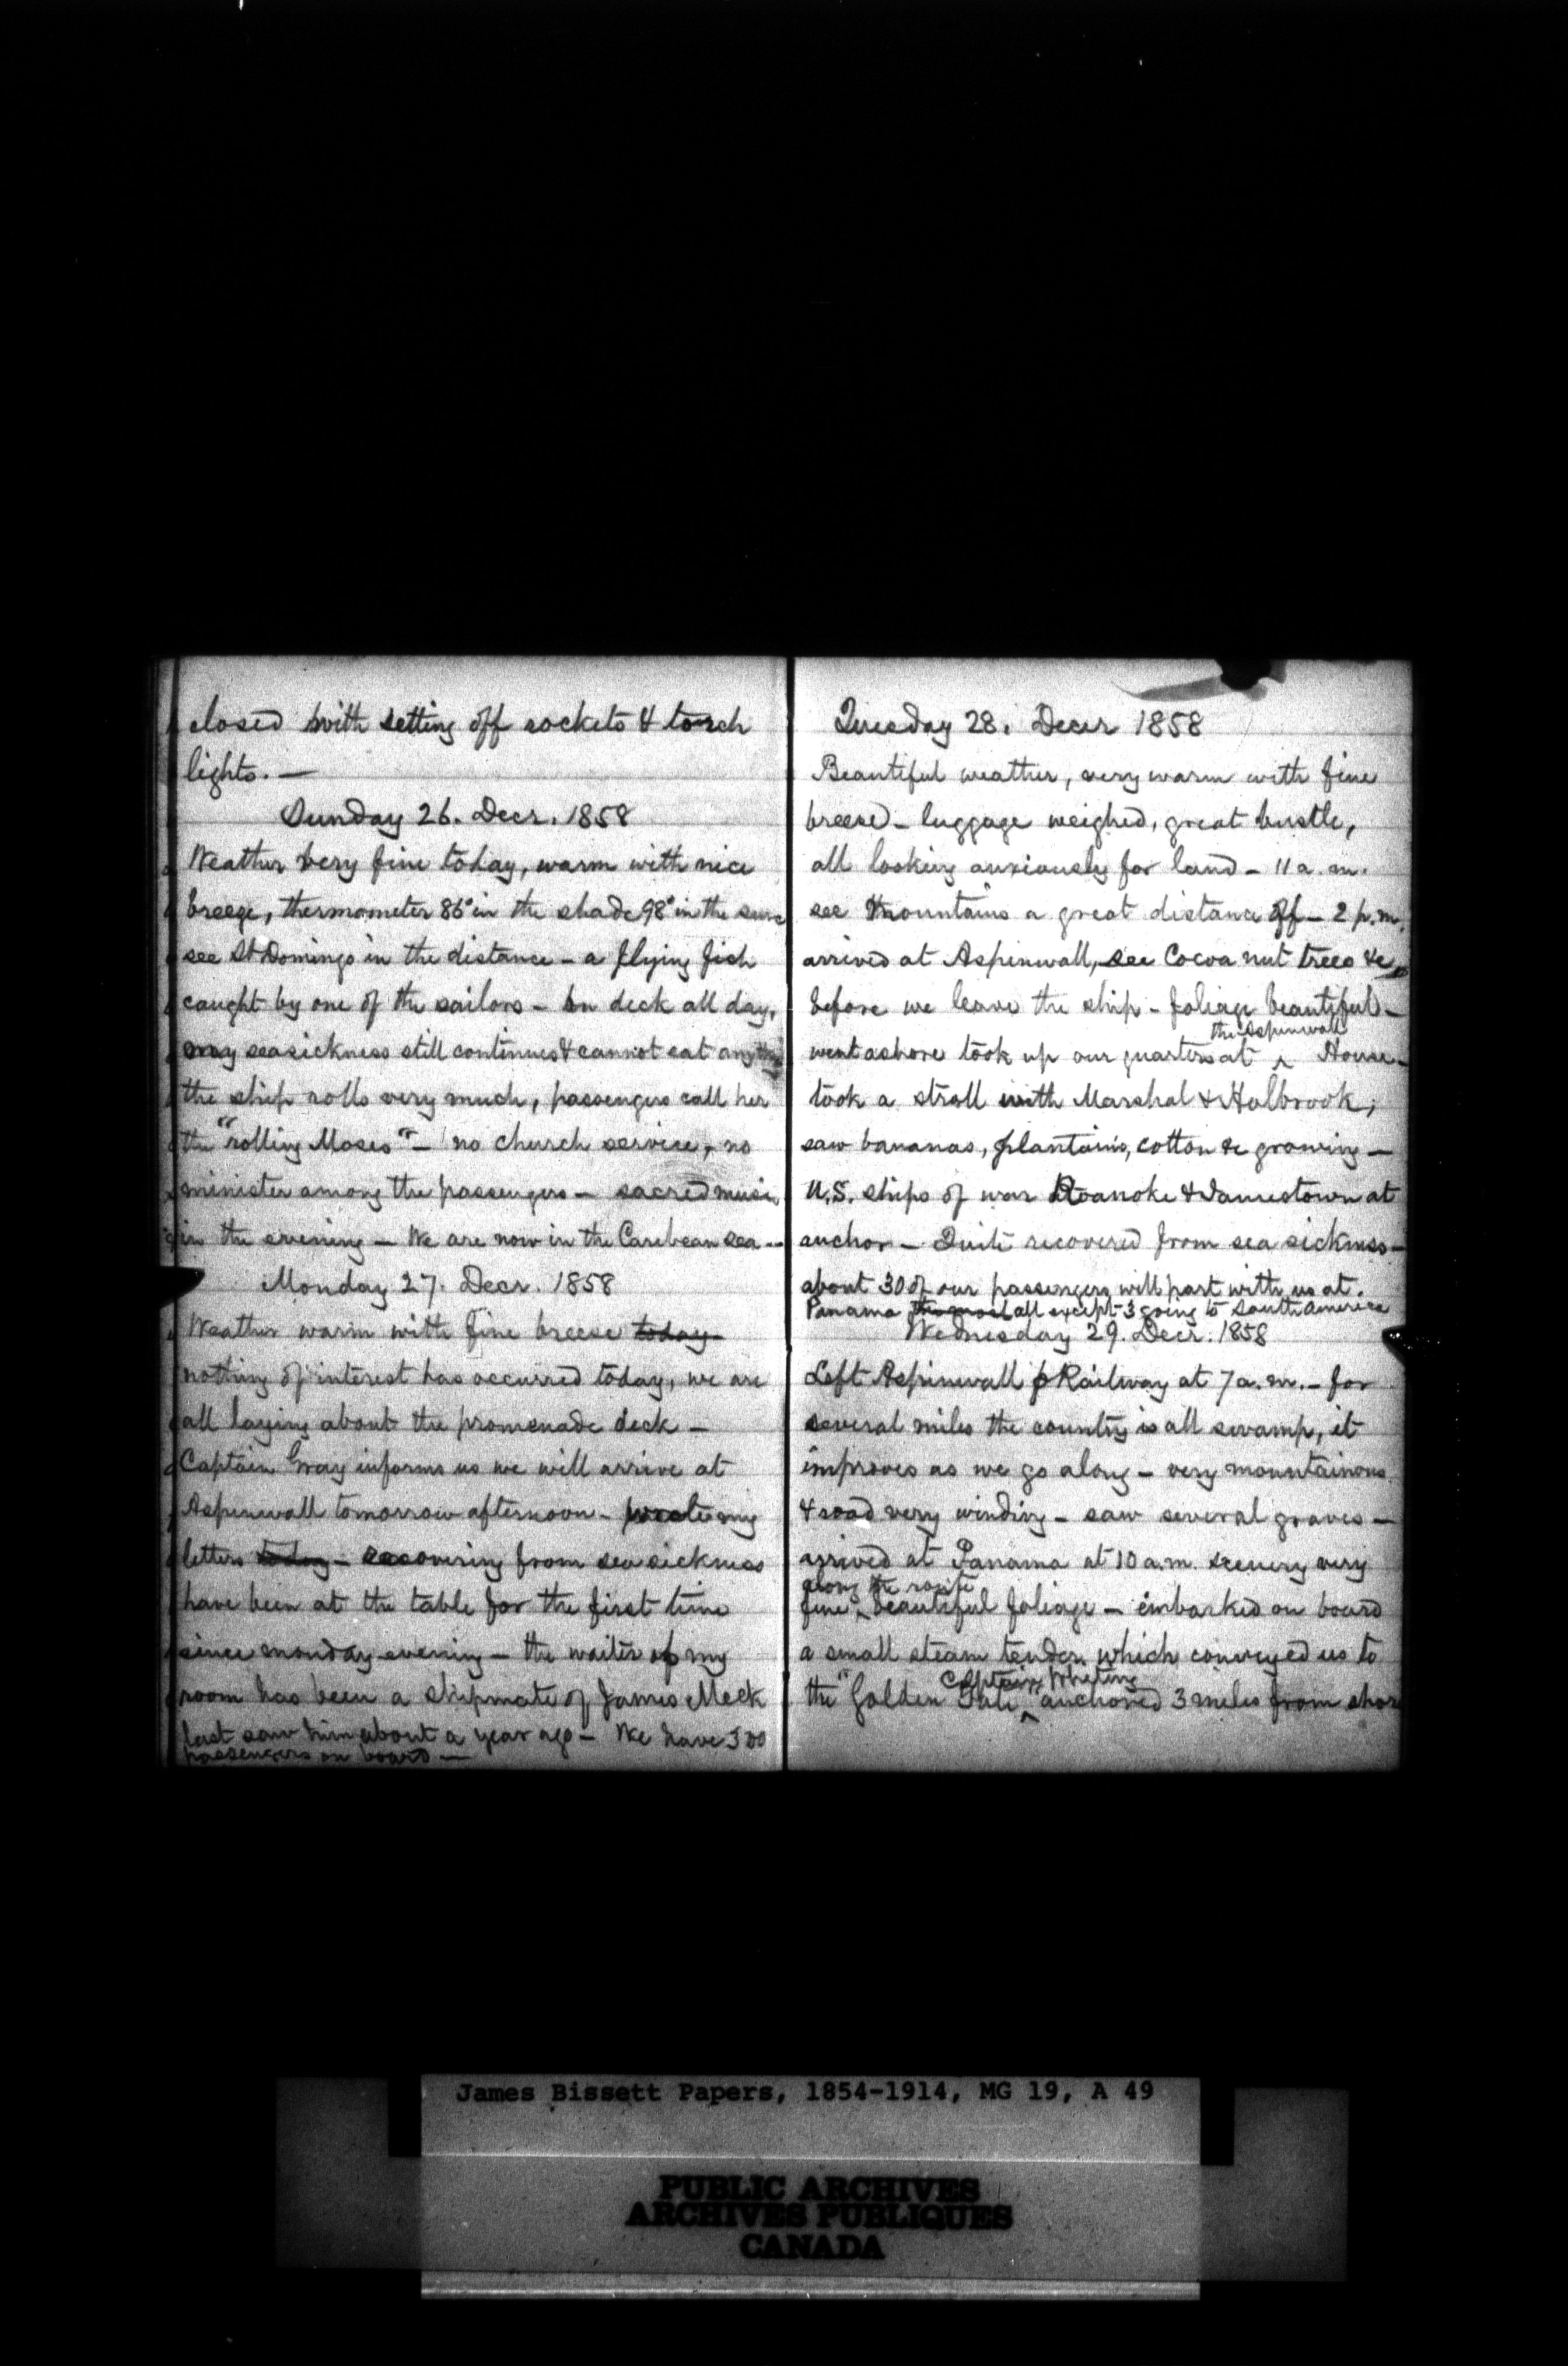 closed with setting off rockets & torch
lights. —
Sunday 26. Decr. 1858
Weather very fine today, warm with nice
breeze, thermometer 86° in the shade 98° in the sun
see St Domingo in the distance – a flying fish
caught by one of the sailors – on deck all day,
my seasickness still continues & cannot eat anything
the ship rolls very much, passengers call her
the "rolling Moses" – no church service, no
minister among the passengers – sacred music
in the evening – We are now in the Caribean sea –
Monday 27. Decr. 1858
Weather warm with fine breeze today
nothing of interest has occurred today, we are
all laying about the promenade deck –
Captain Gray informs us we will arrive at
Aspinwall tomorrow afternoon – wrote my
letters today – recovering from sea sickness
have been at the table for the first time
since monday evening – the waiter of my
room has been a shipmate of James Meek
last saw him about a year ago – We have 500
passengers on board —
Tuesday 28. Decr 1858
Beautiful weather, very warm with fine
breeze – luggage weighed, great bustle,
all looking anxiously for land – 11 a.m.
see mountains a great distance off – 2 p.m.
arrived at Aspinwall, see Cocoa nut trees &c
before we leave the ship – foliage beautiful –
the Aspinwall
went ashore took up our quarters at ‸ House –
took a stroll with Marshal & Holbrook,
saw bananas, plantains, cotton &c growing –
U.S. ships of war Roanoke & Jamestown at
anchor – Quite recovered from sea sickness –
about 30 of our passengers will part with us at
Panama the most all except 3 going to South America
Wednesday 29. Decr. 1858
Left Aspinwall p Railway at 7 a.m. – for
several miles the country is all swamp, it
improves as we go along – very mountainous
& road very winding – saw several graves –
arrived at Panama at 10 a.m. scenery very
along the route
fine ‸ beautiful foliage – embarked on board
a small steam tender which conveyed us to
Captain Whiting
the "Golden Gate" ‸ anchored 3 miles from shor
James Bissett Papers, 1854-1914, MG 19, A 49
PUBLIC ARCHIVES
ARCHIVES PUBLIQUES
CANADA